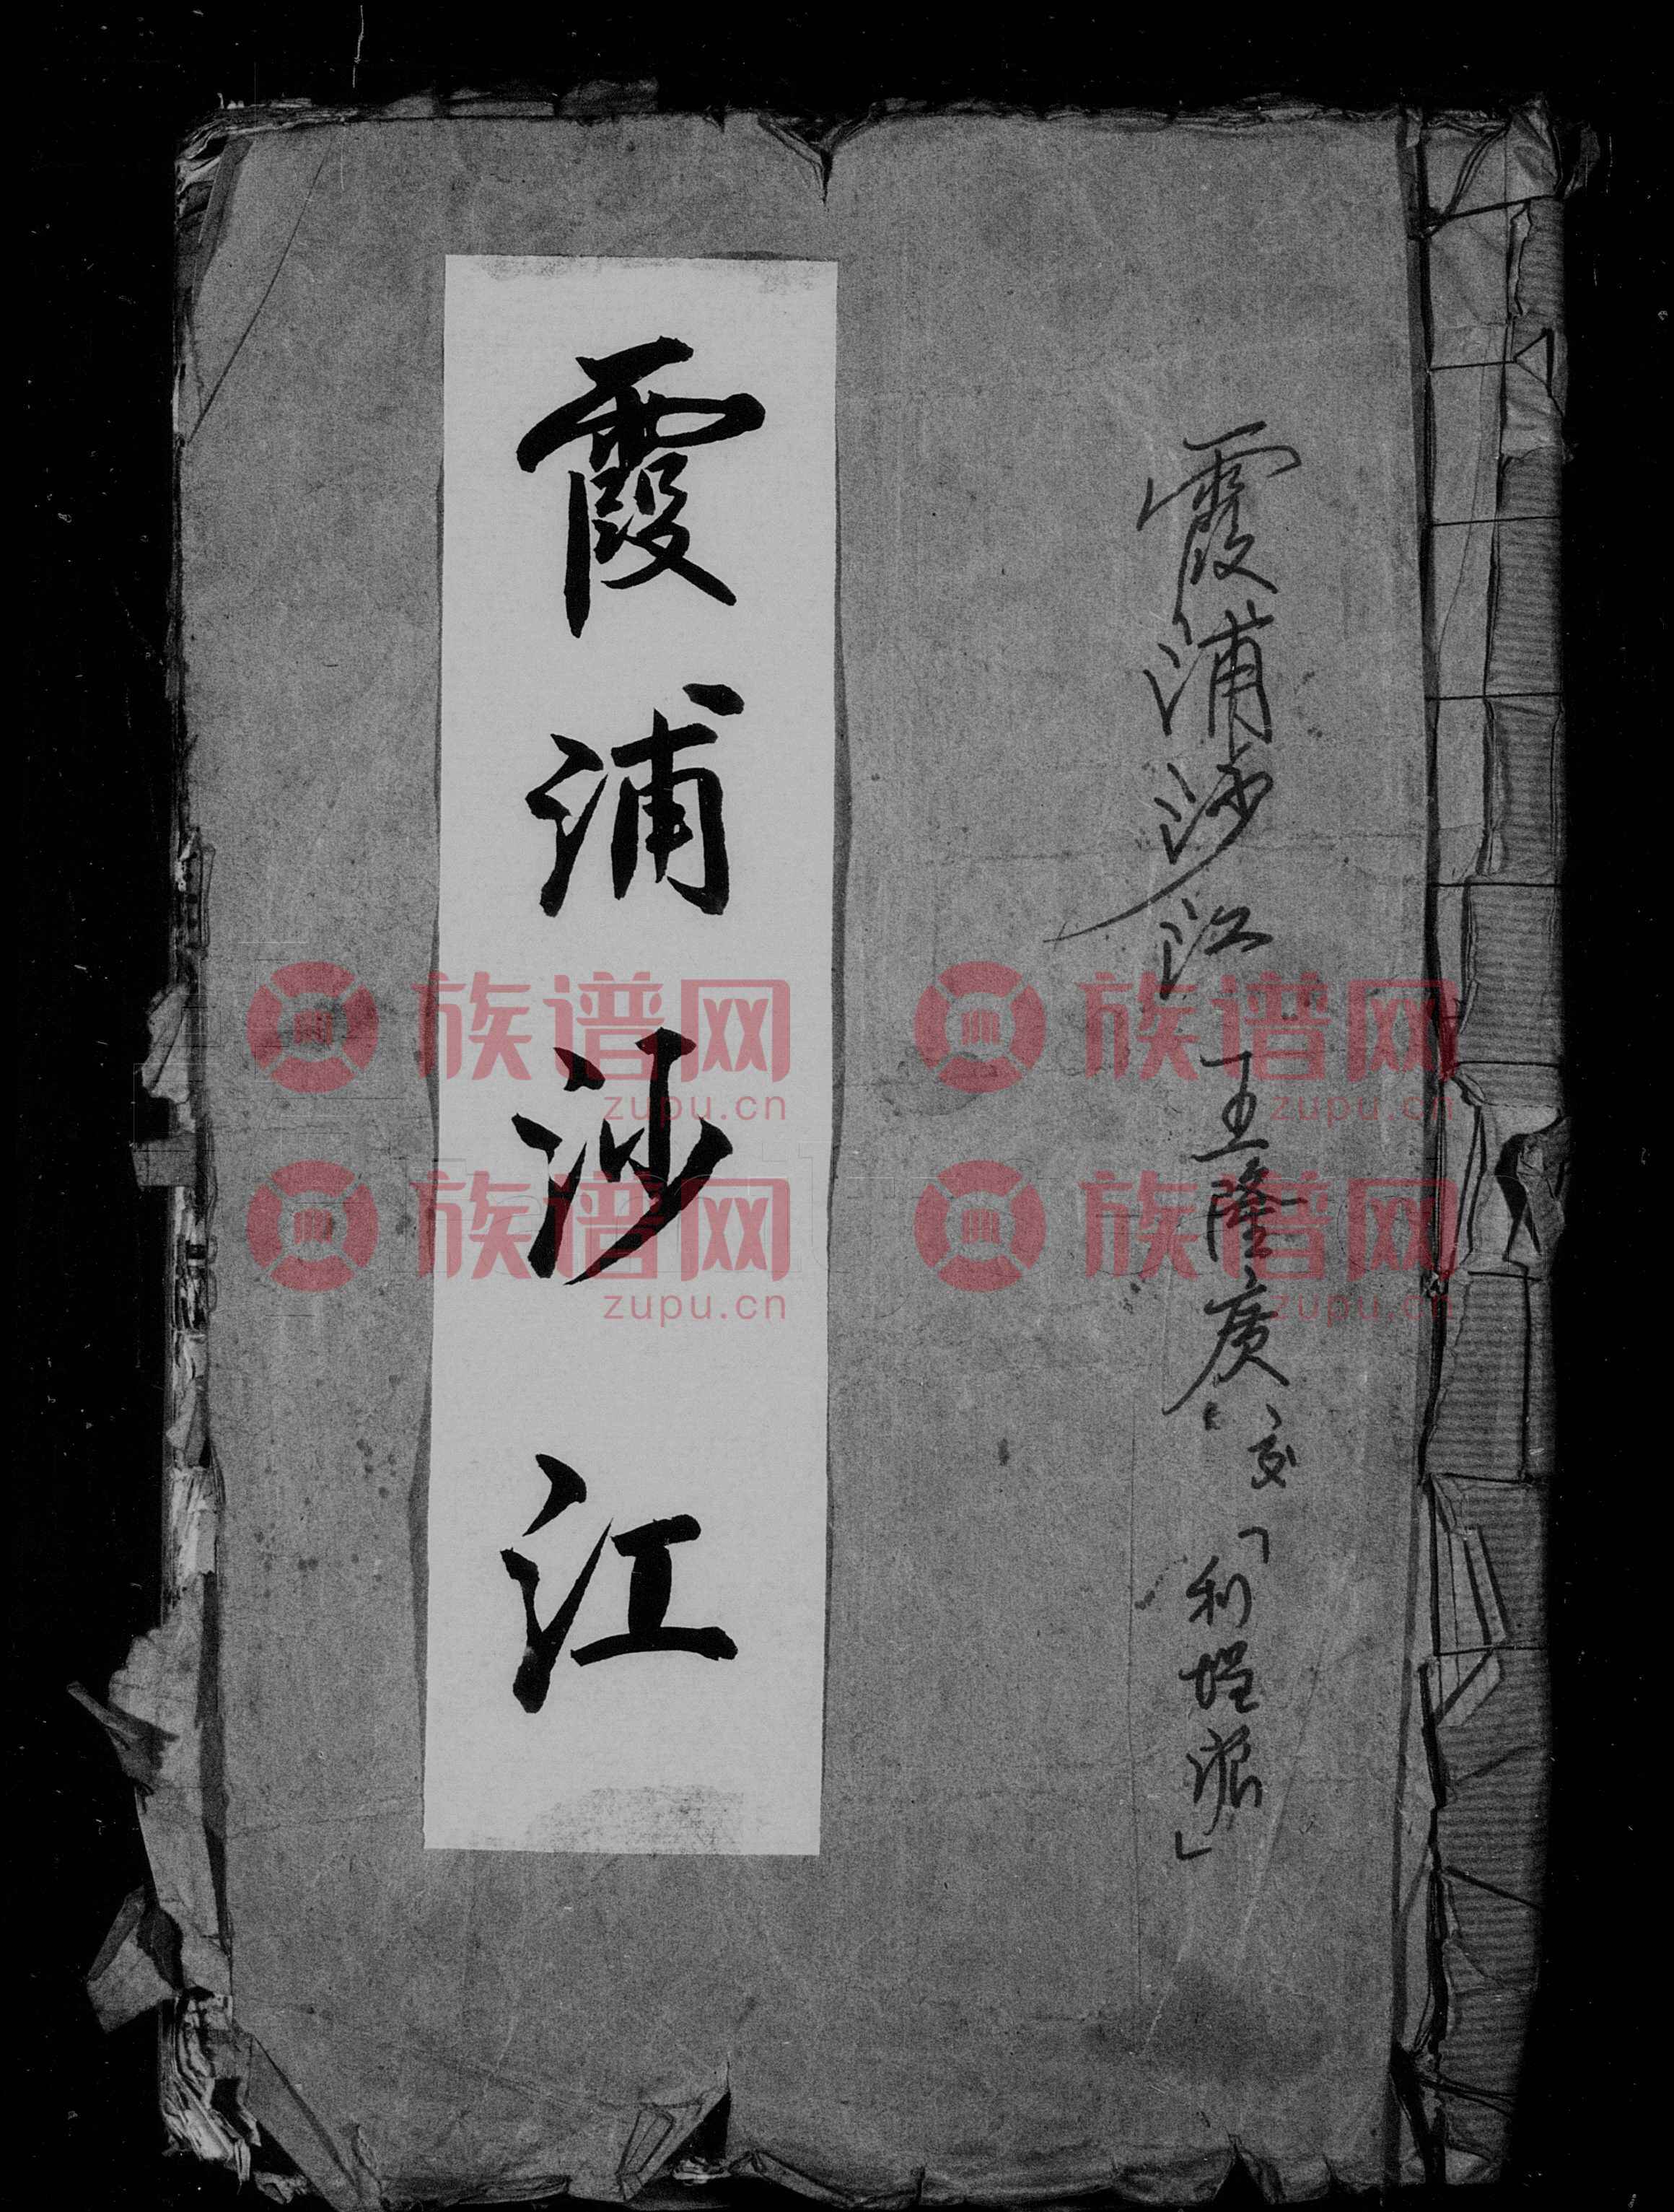 霞浦沙江 王隆廣 交「利埕派」
霞浦沙江
族谱网 族谱网
zupu.cn zupu.cn
族谱网 族谱网
zupu.cn zupu.cn